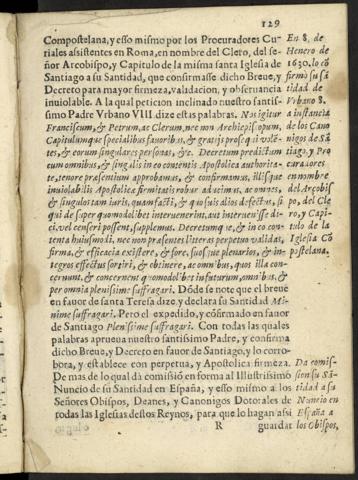 129
Compostelana, y esso mismo por los Procuradores Cu-
riales assistentes en Roma, en nombre del Clero, del se-
ñor Arcobispo, y Capitulo de la misma santa Iglesia de
Santiago a su Santidad, que confirmasse dicho Breue, y
Decreto para mayor firmeza, validacion, y obseruancia
inuiolable. A la qual peticion inclinado nuestro santis-
simo Padre Vrbano VIII dize estas palabras. Nos igitur
Franciscum, & Petrum, ac Clerum, nec non Archiepiscopum,
Capitulumque specialibus fauoribus, & gratijs prosequi volẽ-
tes, & eorum singulares personas, &c. Decretum prædictum
cum omnibus, & singulis in eo contentis Apostolica authorita-
te, tenore præsentium approbamus, & confirmamus, illisque
inuiolabilis Apostolicæ firmitatis robur adiicimus, ac omnes,
& singulos tam iuris, quam facti, & quosuis alios defectus, si
qui de super quomodolibet interuenerint, aut interuenisse di-
ci, vel censeri possent, supplemus. Decretumque, & in eo con-
tenta huiusmodi, nec non præsentes litteras perpetuo validas,
firmas, & efficacia existere, & fore, suosque plenarios, & in-
tegros effectus sortiri, & obtinere, ac omnibus, quos illa con-
cernunt, & concernent quomodolibet in futurum, omnibus, &
per omnia plenissime suffragari. Dõde se note que el breue
en fauor de santa Teresa dize, y declara su Santidad Mi-
nime suffragari. Pero el expedido, y cõfirmado en fauor
de Santiago Plenissime suffragari. Con todas las quales
palabras aprueua nuestro santissimo Padre, y confirma
dicho Breue, y Decreto en fauor de Santiago, y lo corro-
bora, y establece con perpetua, y Apostolica firmeza.
De mas de lo qual dà comissiõ en forma al Illustrissimo
Nuncio de su Santidad en España, y esso mismo a los
Señores Obispos, Deanes, y Canonigos Dotorales de
todas las Iglesias destos Reynos, para que lo hagan assi
R guardar
En 8. de
Henero de
1630. lo cõ
firmò su sã
tidad de
Vrbano 8.
a instancia
de los Cano
nigos de Sã
tiago, y Pro
curadores
en nombre
del Arçobis
po, del Cle
ro, y Capi-
tulo de la
Iglesia Cõ
postelana.
Da comis-
sion su Sã-
tidad a su
Nuncio en
España a
los Obispos,